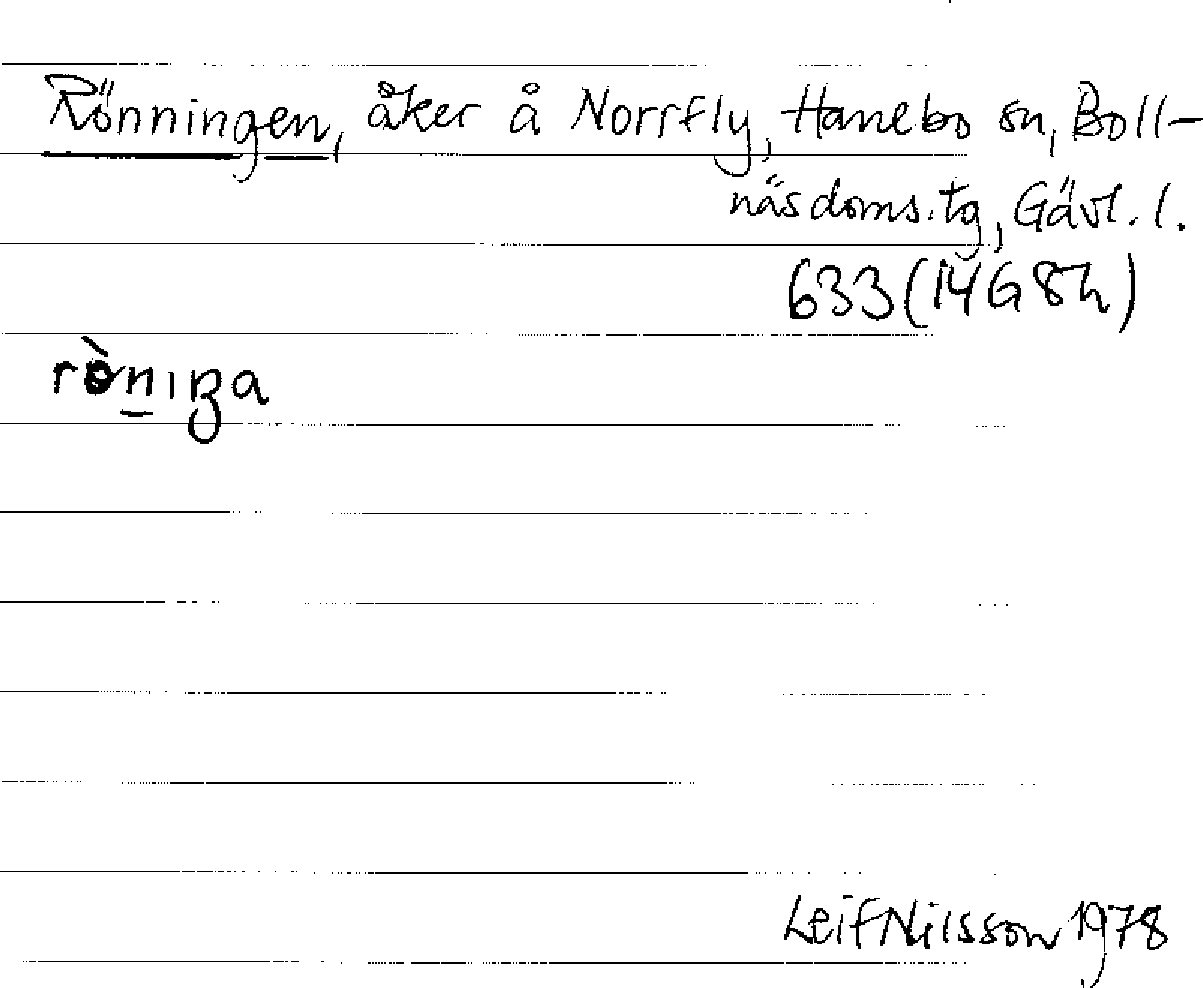 Rönningen, åker å Norrfly, Hanebo sn, Boll-
näs doms. tg, Gävl. l.
633 (14G 8h)
Leif Nilsson 1978